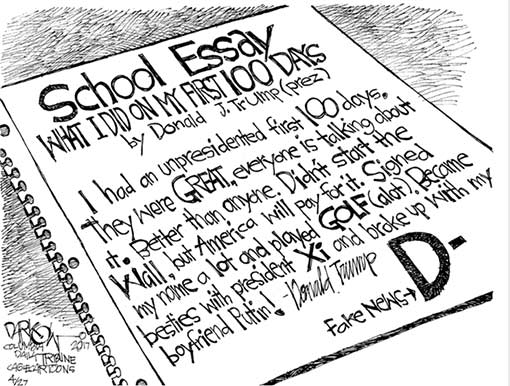 School Essay
WHAT I DID ON MY FIRST 100 DAYS
by Donald J. Trump (prez)
I had an unpresidented first 100 days.
They were GREAT, everyone is talking about
it. Better than anyone. Didn't start the
Wall, but America will pay for it. Signed
my name a lot and played GOLF (alot). Became
besties with president Xi and broke up with my
boyfriend Putin! -Donald Trump
Fake News→ D-
DARKOW
© 2017
COLUMBIA
DAILY TRIBUNE
CAGLECARTOONS
4/27